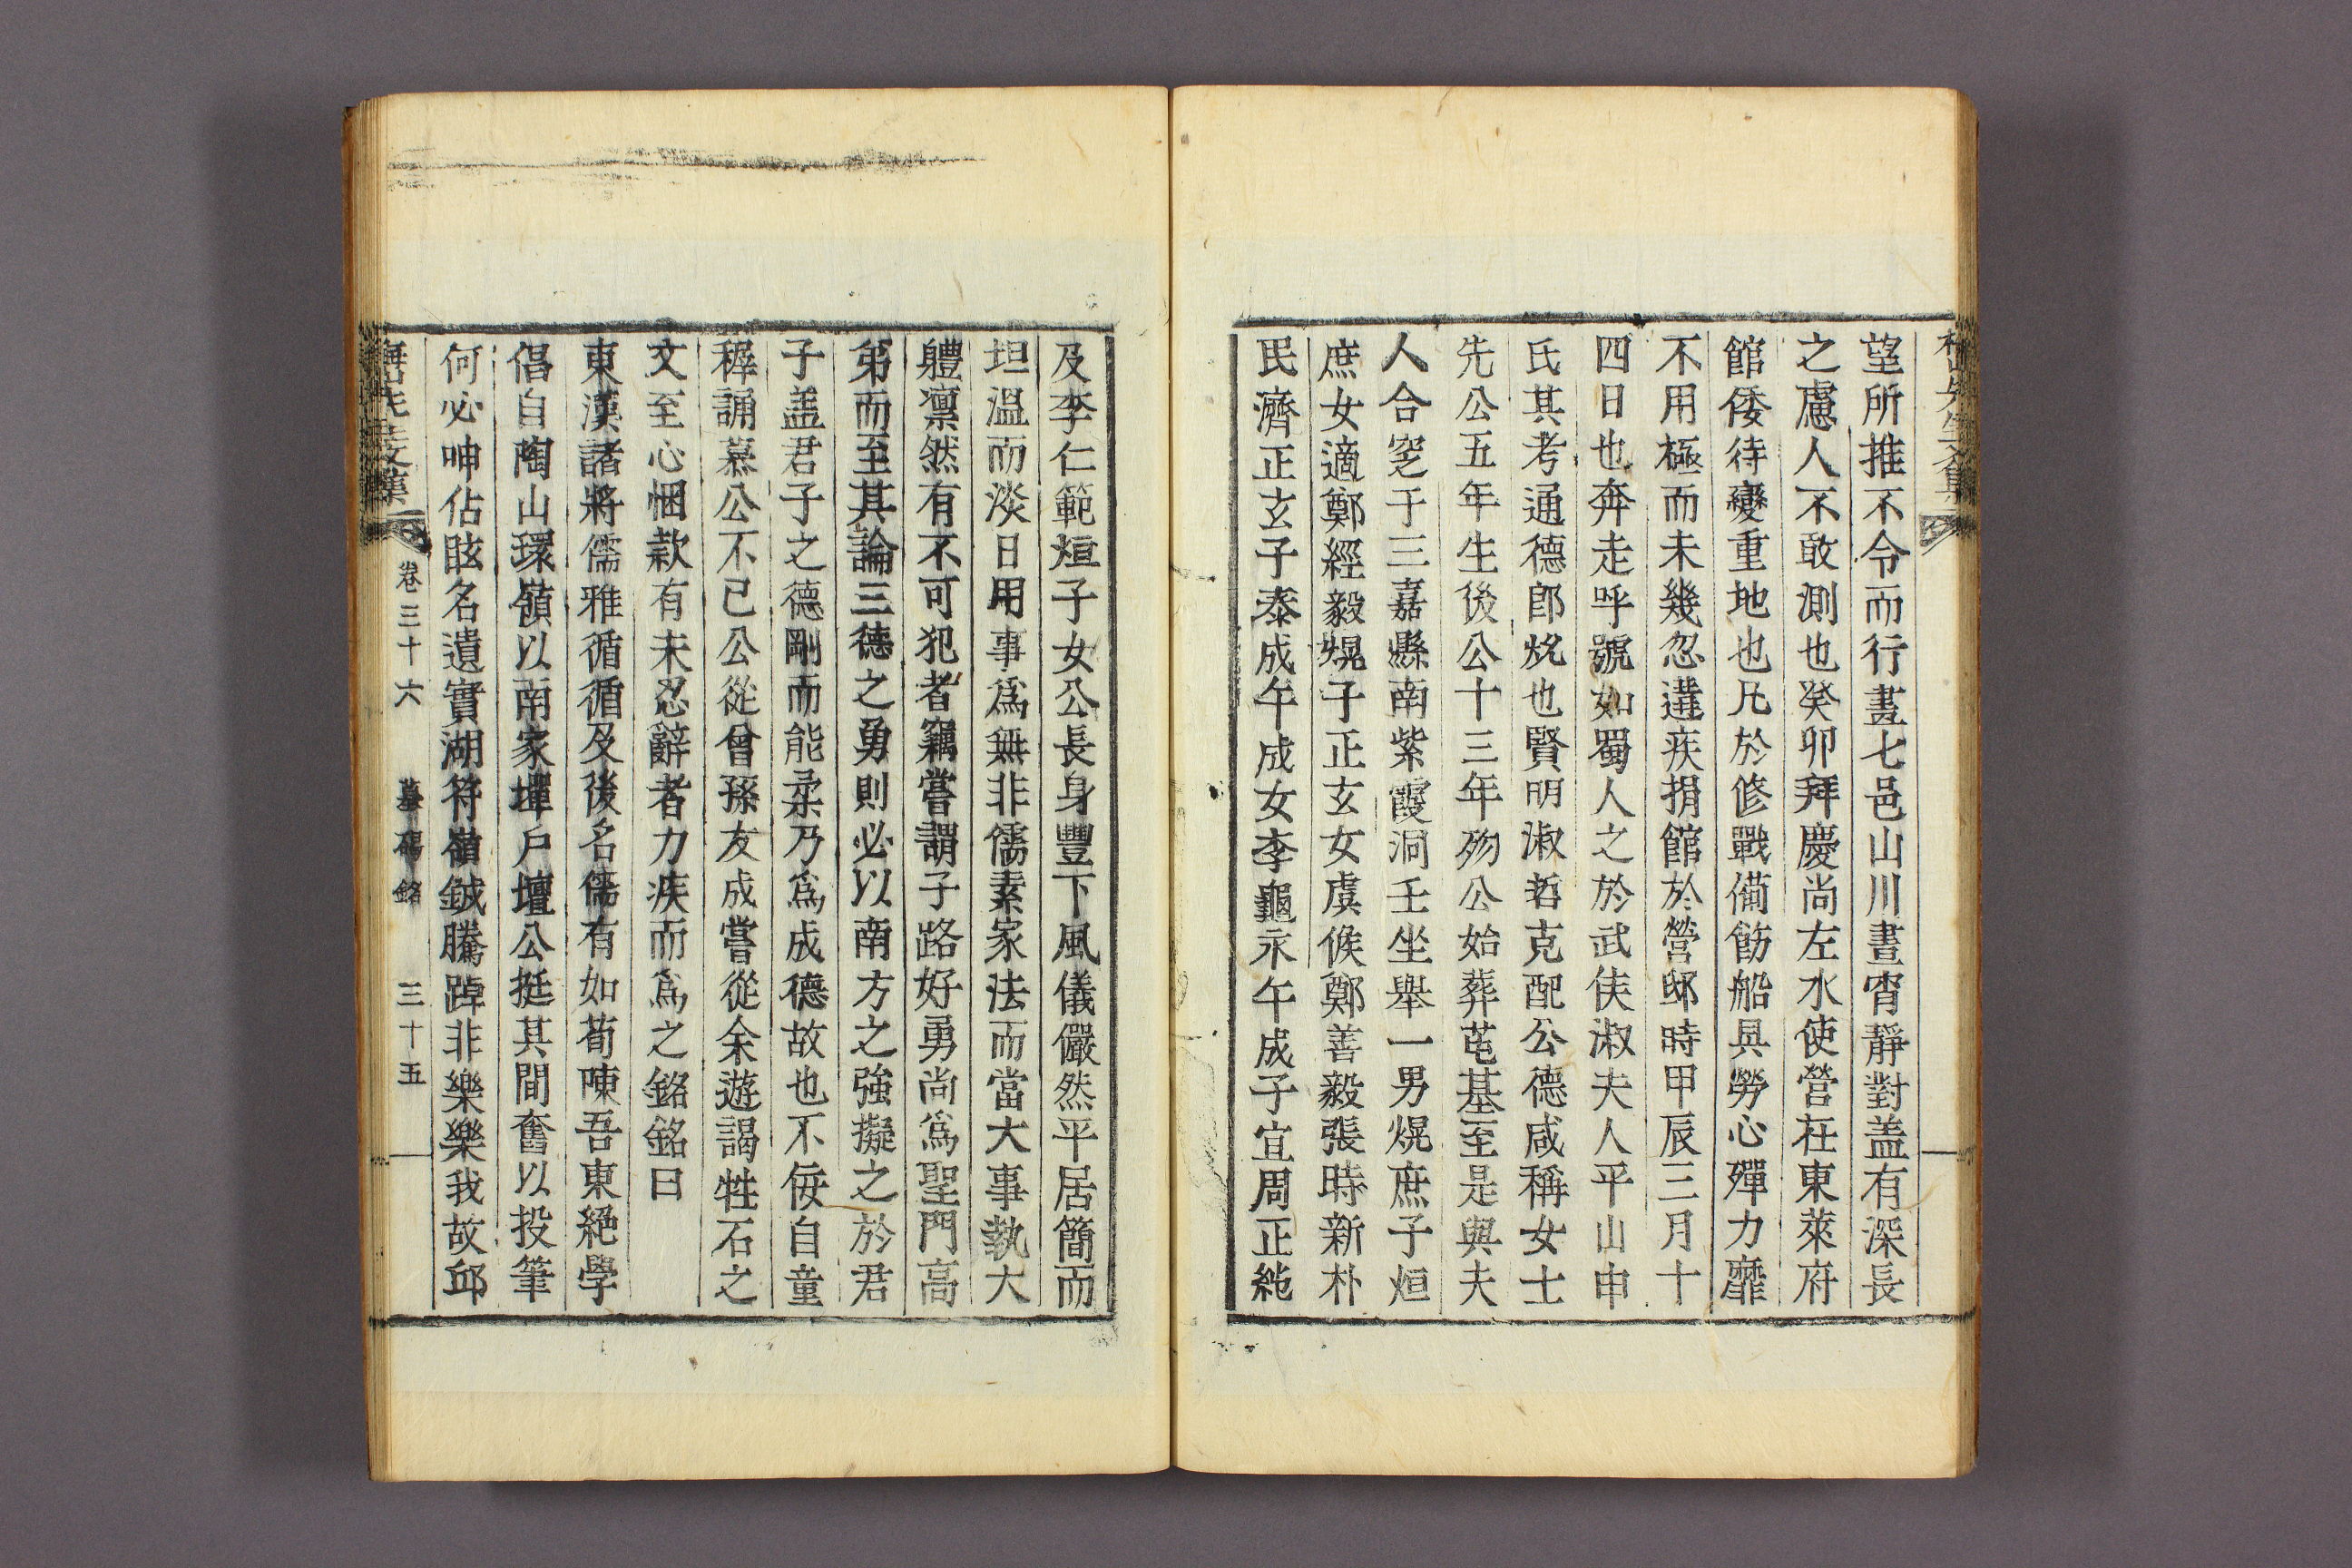 望所推不令而行畫七邑山川晝宵靜對盖有深長
之慮人不敢測也癸卯拜慶尚左水使營在東萊府
館倭待變重地也凡於修戰備飭船具勞心殫力靡
不用極而未幾忽遘疾捐館於營邸時甲辰三月十
四日也奔走呼號如蜀人之於武侯淑夫人平山申
氏其考通德郎烑也賢明淑哲克配公德咸稱女士
先公五年生後公十三年歿公始葬芚基至是與夫
人合窆于三嘉縣南紫霞洞壬坐舉一男熀庶子烜
庶女適鄭經毅熀子正玄女虞候鄭善毅張時新朴
民濟正玄子泰成午成女李龜永午成子宜周正純
及李仁範烜子女公長身豐下風儀儼然平居簡而
坦溫而淡日用事爲無非儒素家法而當大事執大
軆凛然有不可犯者竊嘗謂子路好勇尚爲聖門高
弟而至其論三德之勇則必以南方之強擬之於君
子盖君子之德剛而能柔乃爲成德故也不侫自童
穉誦慕公不已公從曾孫友成嘗從余遊謁牲石之
文至心悃款有未忍辭者力疾而爲之銘銘曰
東漢諸將儒雅循循及後名儒有如荀陳吾東絕學
倡自陶山環嶺以南家墠戶壇公挺其間奮以投筆
何必呻佔眩名遺實湖符嶺鉞騰踔非樂樂我故邱
卷三十六 墓碣銘 三十五